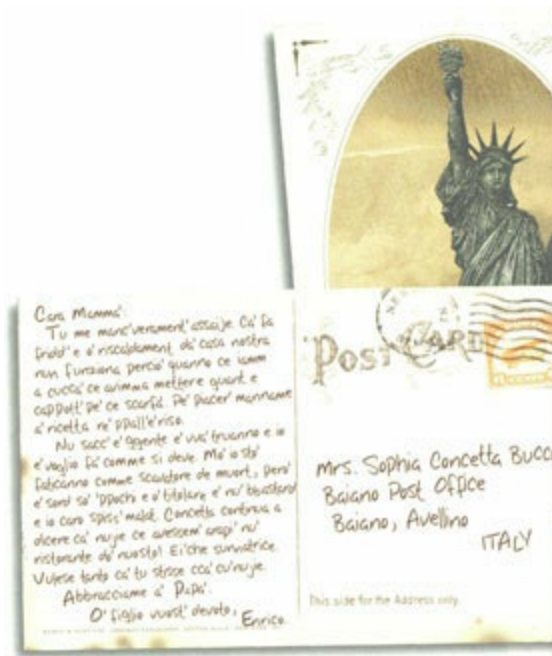 Cara Mamma'
Tu me manc' verament' assaije. Ca' fa
fridd' e o' riscaldament' da' casa nostra
nun funziona percio' quanno ce iamm
a cucca' ce avimma mettere quant' e
cappott' pe' ce scarfa'. Pe' piacer' manname
a' ricetta re' ppall'e riso.
Nu sacc' e' ggente e' vva' truanno e io
e' voglio fa' comme si deve. Mo' io sto'
faticanno comme scavatore de muort', pero'
e' sord' so' 'ppochi e o' titolare e' nu' bbastard
e io caro spiss' malat'. Concetta continua a
dicere ca' nuje ce avessem' arapi' nu'
ristorante do' nuosto! Ei' che sunnatrice.
Vulesse tanto ca' tu stisse cca' cu' nuje.
Abbracciame a' Papa'.
O' figlio vuost' devoto,
Enrico
POST CARD
Mrs. Sophia Concetta Bucci
Baiano Post Office
Baiano, Avellino
ITALY
This side for the Address only.